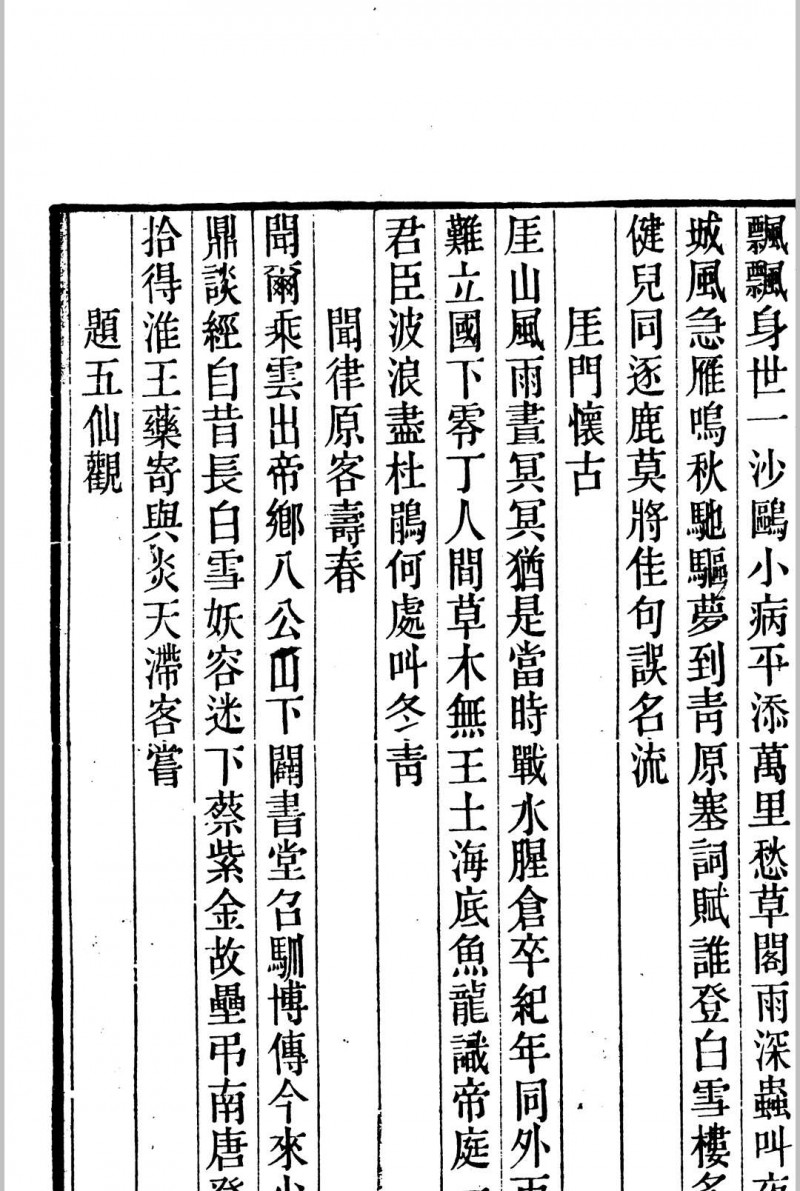 飄飄身世一沙鷗小病平添萬里愁草閣雨深蟲叫夜
城風急雁嗚秋馳驅夢到靑原塞詞賦誰登白雪樓多
健兒同逐鹿莫將佳句誤名流
厓門懷古
厓山風雨晝冥冥猶是當時戰水腥倉卒紀年同外丙
難立國下零丁人間草木無王土海底魚龍識帝庭一
君臣波浪盡杜鵑何處叫冬靑
聞律原客壽春
聞爾乘雲出帝鄉八公山下闢書堂召馴博傳今來少
鼎談經自昔長白雪妖容迷下蔡紫金故壘弔南唐登
拾得淮王藥寄與炎天滯客嘗
題五仙觀